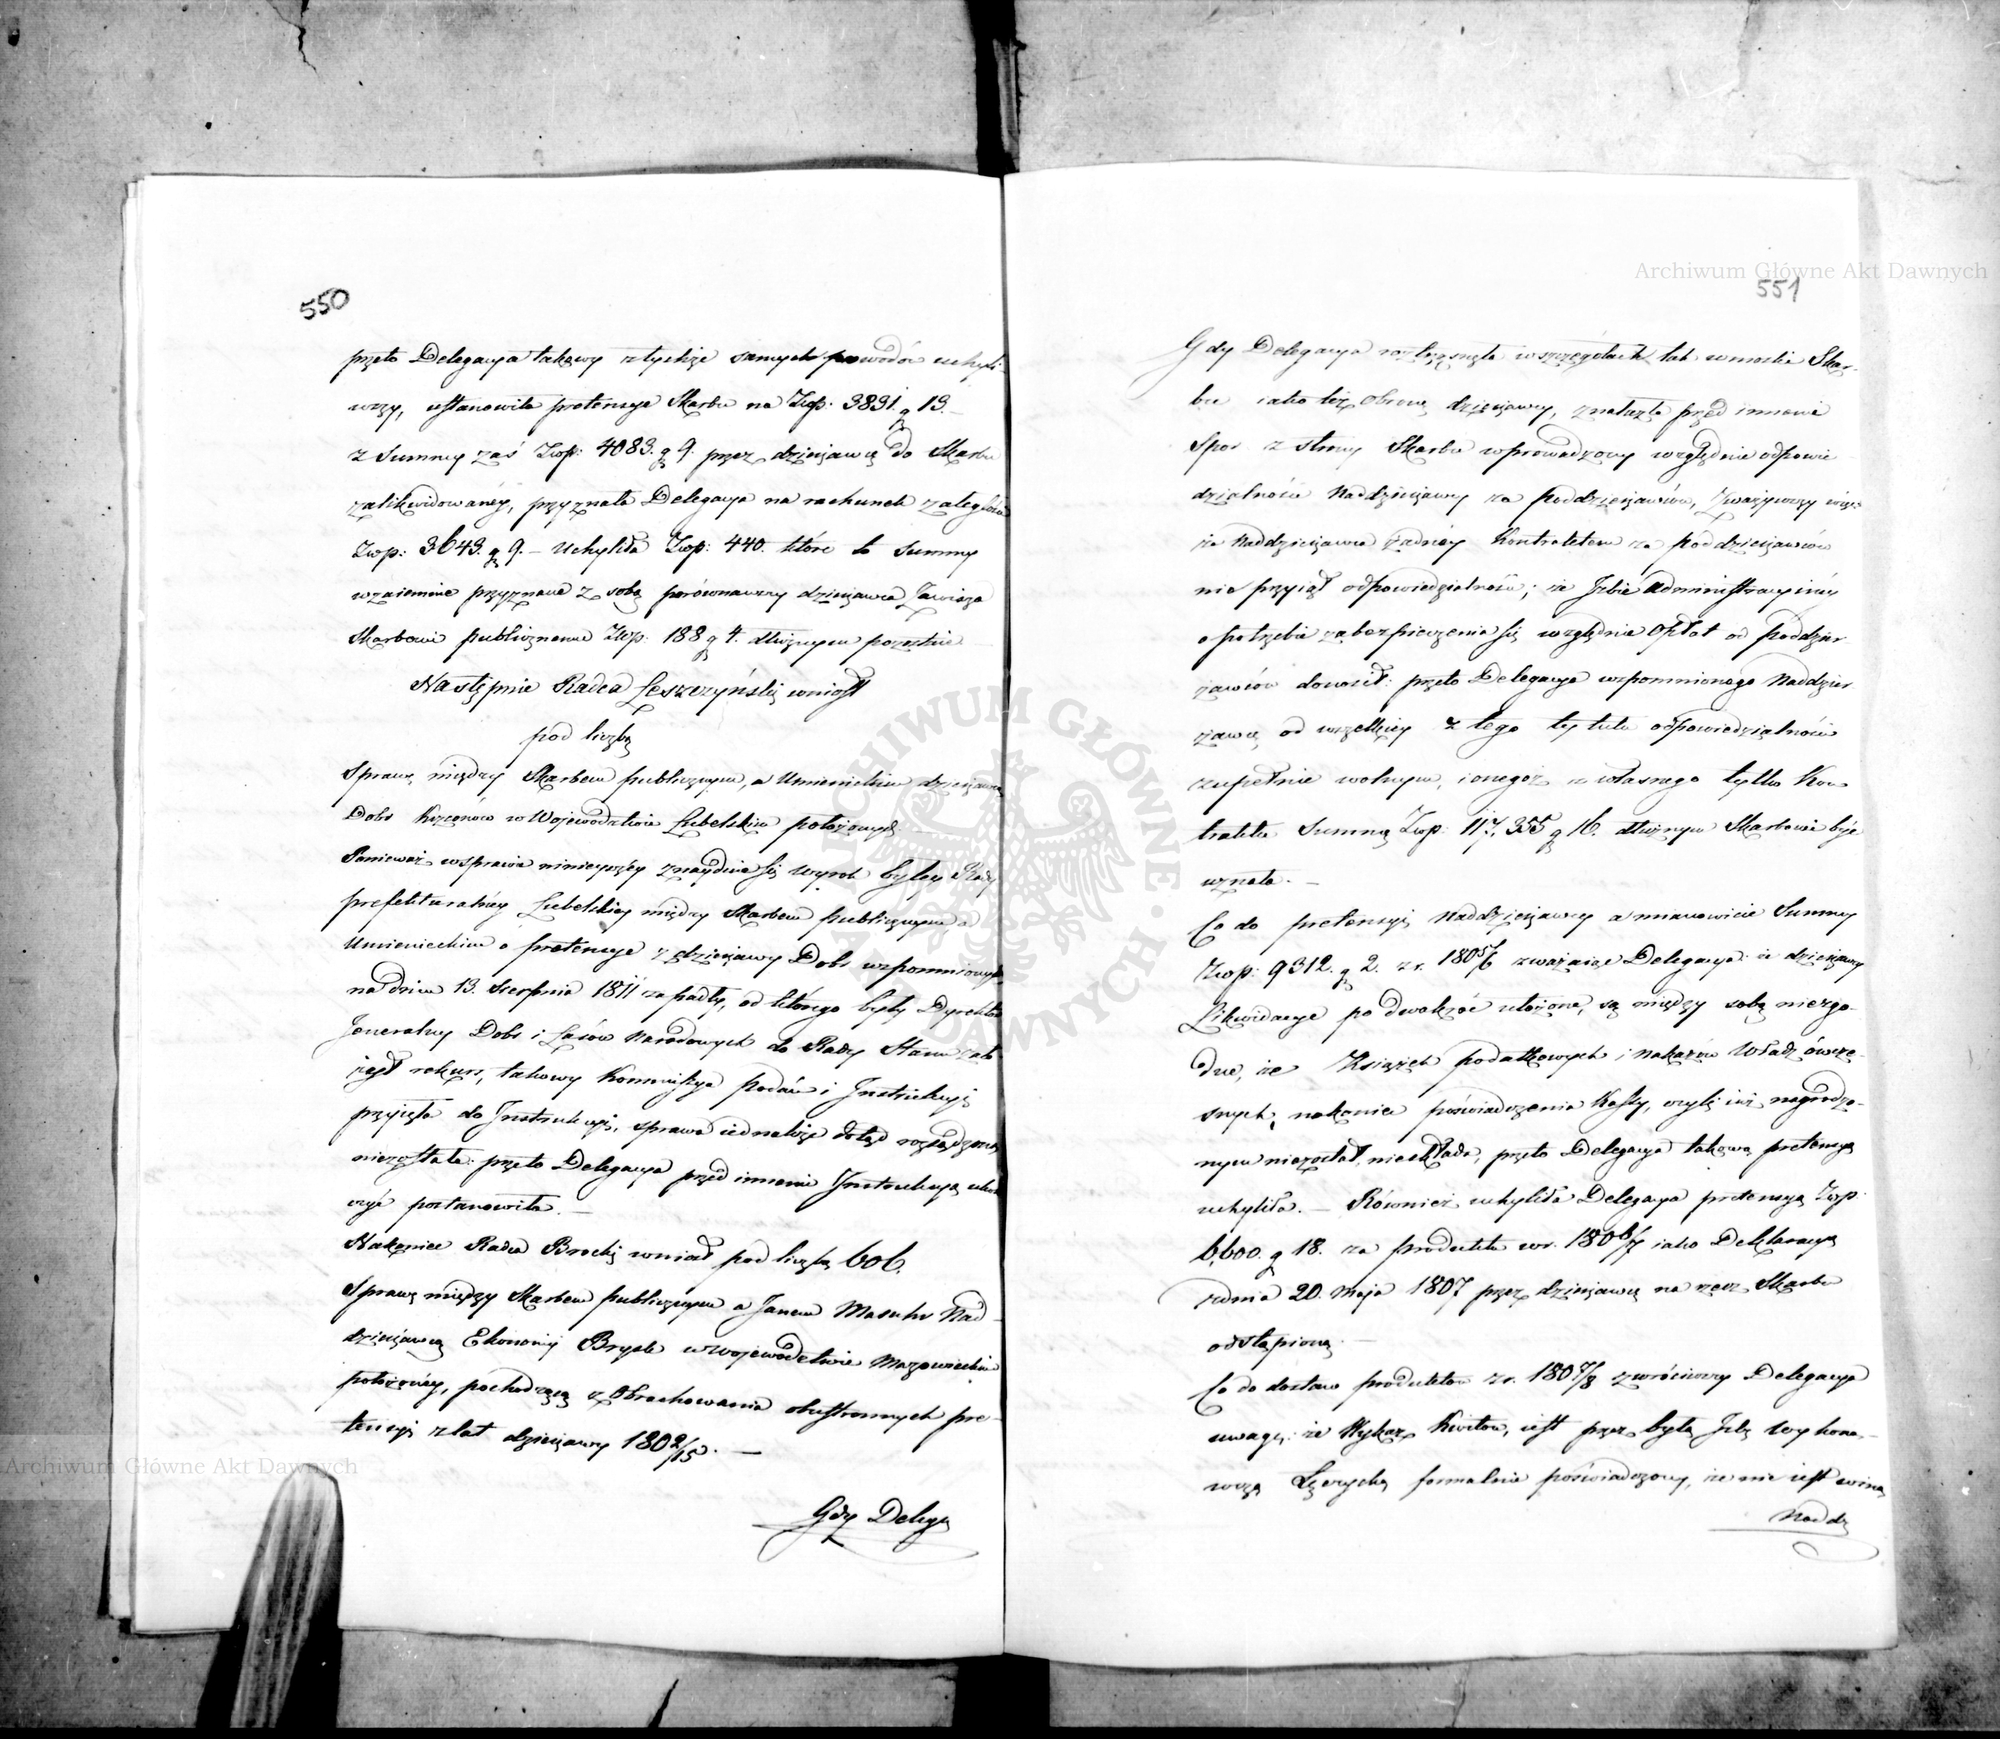 550
przeto Delegacya takowy z tychże samych powodów uchyli-
wszy, ustanowiła pretensye Skarbu na Złwp: 3831. g 13.
z Summy zaś Złwp: 4083. g 9. przez dzierżawcę do Skarbu
zalikwidowanéy, przyznała Delegacya na rachunek zaległości
Złwp: 3643. g 9. – Uchyliła Złwp: 440. które to Summy
wzaiemnie przyznane z sobą porównawszy dzierżawca Zawisza
Skarbowi publicznemu Złwp: 188 g 4. dłużnym pozostaie
Następnie Radca Leszczyński wniosł
pod liczbą
Sprawę między Skarbem publicznym, a Umienieckim dzierżawcą
Dóbr Krzczonów w Województwie Lubelskim położonych.
Ponieważ w sprawie ninieyszéy znayduie się wyrok byłey Rady
prefekturalnéy Lubelskiey między Skarbem publicznym a
Umienieckim o pretensye z dzierżawy Dóbr wzpomnionych
na dniu 13. Sierpnia 1811 zapadły, od którego były Dyrektor
Jeneralny Dobr i Lasów Narodowych do Rady Stanu zało
żył rekurs, takowy Kommissya podań i Instrukcyi
przyięła do Instrukcyi, sprawa iednakże dotąd rozsądzoną
niezostała: przeto Delegacya przed innemi Instrukcyą ukoń
czyć postanowiła. –
Nakoniec Radca Brocki wniosł pod liczbą 606.
Sprawę między Skarbem publicznym a Janem Masuhr Nad-
dzierżawcą Ekonomij Brysk w Województwie Mazowieckim
położonéy, pochodzącą z Obrachowania obustronnych pre-
tensyi z lat dzierżawy 1802/15. –
Gdy Delega
551
Gdy Delegacya roztrząsnęła w szczegółach tak wnioski Skar-
bu iako też obronę dzierżawcy, znalazła przed innemi
Spór z strony Skarbu wprowadzony względnie odpowie
dzialności Naddzierżawcy za poddzierżawców, Zważywszy więc
że Naddzierżawca żadnéy Kontraktem za poddzierżawców
nie przyiął odpowiedzialności; że Izbie Administracyinéy
o potrzebie zabezpieczenia się względnie Opłat od poddzier
żawców donosił: przeto Delegacya wzpomnionego Naddzier
żawcę od wszelkiey z tego tytułu odpowiedzialności
zupełnie wolnym, i onegoż z własnego tylko Kon
traktu Summą Złwp: 117,355 g 16. dłużnym Skarbowi być
uznała. –
Co do pretensyi Naddzierżawcy a mianowicie Summy
Złwp: 9312. g 2. z r. 1805/6 zważaiąc Delegacya: że dzierżawcy
Likwidacye po dwakroć ułożone, są między sobą niezgo-
dne, że Xsiążek podatkowych i nakazów Władz ówcze-
snych, nakoniec poświadczenia Kassy, czyli iuż nagrodzo-
nym niezostał, nieskłada, przeto Delegacya takową pretensyą
uchyliła. – Również uchyliła Delegacya pretensyą Złwp:
6,600. g 18. za produkta w r. 1806/7 iako Deklaracyą
z dnia 20. Maja 1807 przez dzierżawcę na rzecz Skarbu
odstąpioną. –
Co do dostaw produktów z r. 1807/8 zwróciwszy Delegacya
uwagę: że Wykaz Kwitów, iest przez byłą Izbę Wykona-
wczą Łęczycką formalnie poświadczony, że nie iest winą
Naddz
Archiwum Główne Akt Dawnych
Archiwum Główne Akt Dawnych
ARCHIWUM GŁÓWNE AKT DAWNYCH